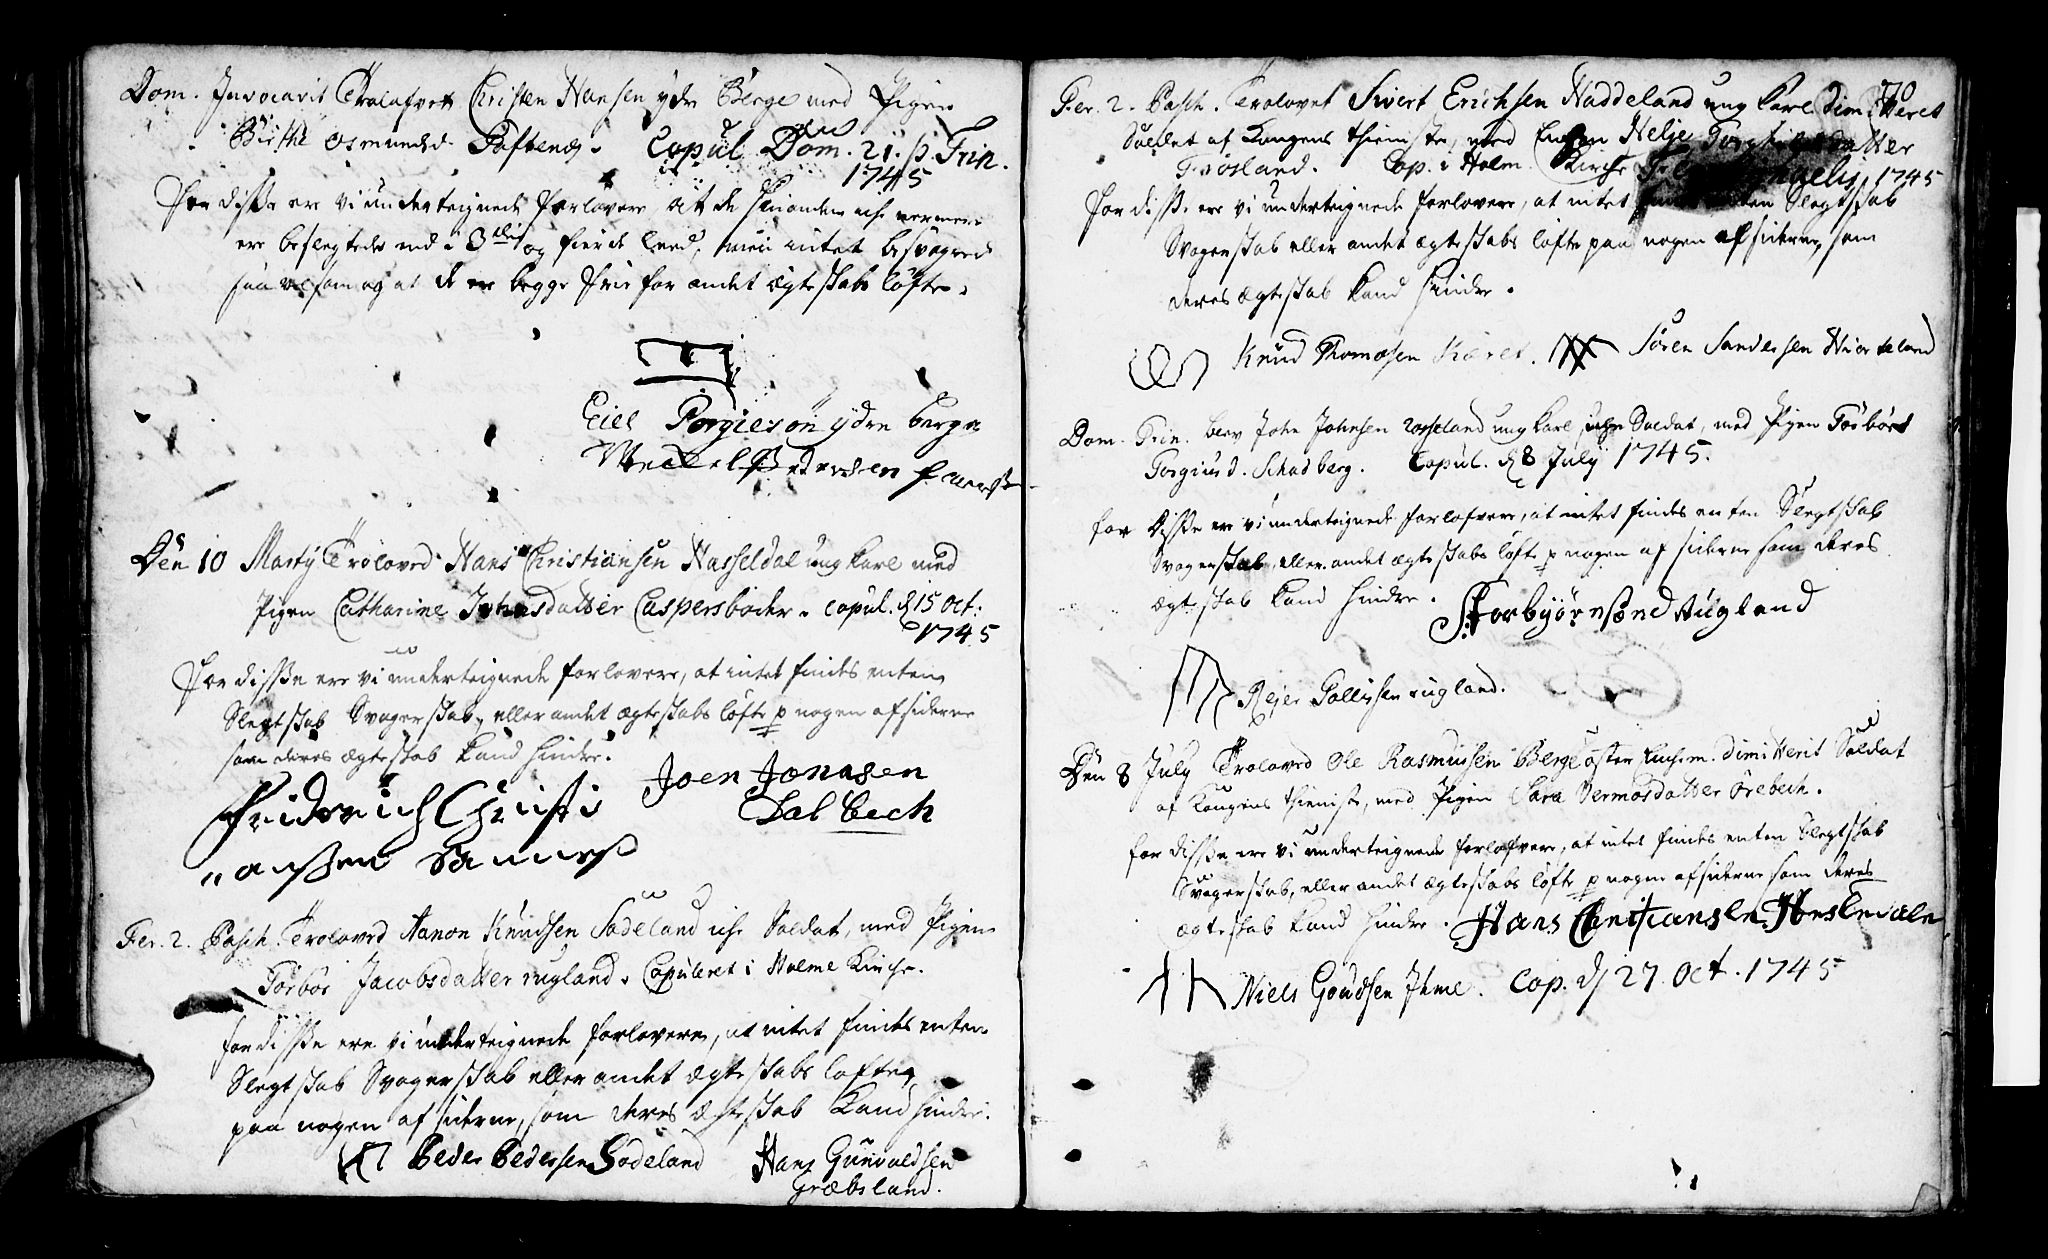 Dom. Invocavit Trolofvet Christen Hansen ydre Berge med Pigen
Birthe Osmunds d. Copul. Dom. 21. p. Trin.
1745
For disse ere vi underteignede forlovere, at de hinanden icke nermere
ere beslegtede end i 3die og fierde leed, men intet besvogrede
saa velsom og at de er begge frie for andet ægteskabs løfte.
Eiel Torgieson ydre berge
Pedersen
Den 10 Martij Troloved Hans Christiansen Hasseldal ung karl med
Pigen Catharine Johnsdatter Caspersboder. copul. d 15 Oct:
1745
For disse ere vi underteignede forlovere, at intet findes enten
Slegtskab Svogerskab, eller andet ægteskabs løfte p nogen af siderne
som deres ægteskab kand hindre.
Joen Jonasen
Fridrich Christi Dalbech
"ansen
Fer. 2. Pasch. Troloved Aanon Knudsen Sodeland icke Soldat, med Pigen
Torbor Jacobsdatter rugland. Copuleret i Holme Kirche.
for disse ere vi underteignede forlovere, at intet findes enten
Slegtskab Svogerskab eller andet ægteskabs løfte
paa nogen af siderne, som deres ægteskab kand hindre.
Peder Pedersen Sodeland Hans Gunvaldsen
Græbsland.
70
Fer. 2. Pasch. Trolovet Sivert Erichsen Haddeland ung karl dimitteret
Soldat af Kongens thieniste, med Enken Helje
Cop. i Holm Kirche 1745
for disse ere vi underteignede forlovere, at intet findes enten Slegtskab
Svogerskab eller andet ægteskabs løfte paa nogen af siderne, som
deres ægteskab kand hindre.
Knud Thomasen Søren Sandersen
Dom. Trin. blev John Johnsen ung karl, icke Soldat, med Pigen Torbor
Torgius d. Schadberg. Copul. d 8 July 1745.
for disse ere vi underteignede forlofvere, at intet findes enten Slegtskab
Svogerskab, eller andet ægteskabs løfte p nogen af siderne som deres
ægteskab kand hindre.
Rejer Tollefsen rugland.
Den 8 July Troloved Ole Rasmusen Berge Enkem. dimitterit Soldat
af Kongens thieniste, med Pigen Sara Vermosdatter Ørebech.
for disse ere vi underteignede forlofvere, at intet findes enten Slegtskab
Svogerskab, eller andet ægteskabs løfte p nogen af siderne som deres
ægteskab kand hindre. Hans Christiansen
Niels Goudsen Ihme. Cop. d 27 Oct. 1745